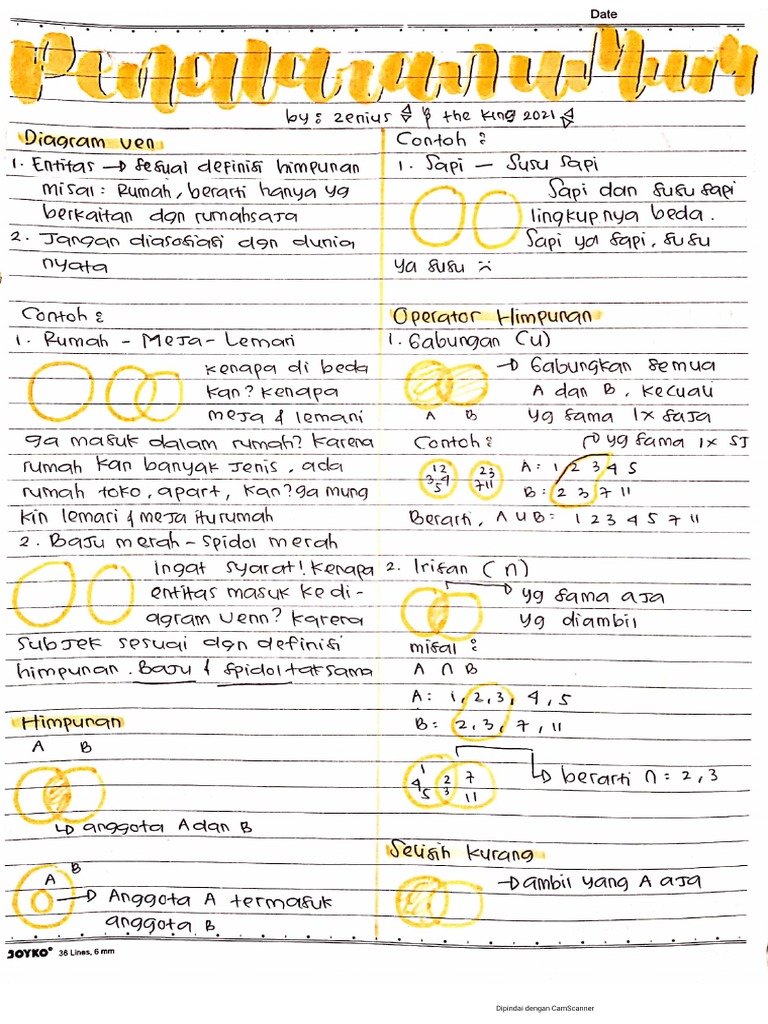 Date
Penalaran Umum
by : zenius & the king 2021
Diagram ven
1. Entitas → sesuai definisi himpunan
misal : Rumah, berarti hanya yg
berkaitan dgn rumah saja
2. Jangan diasosiasi dgn dunia
nyata
Contoh :
1. Rumah - Meja - Lemari
kenapa di beda
kan? kenapa
meja & lemari
ga masuk dalam rumah? karena
rumah kan banyak jenis, ada
rumah toko, apart, kan? ga mung
kin lemari & meja itu rumah
2. Baju merah - spidol merah
Ingat syarat! Kenapa
entitas masuk ke di-
agram venn? karena
subjek sesuai dgn definisi
himpunan. Baju & spidol tak sama
Himpunan
A B
↳ anggota A dan B
A B
→ Anggota A termasuk
anggota B
Contoh :
1. Sapi - Susu sapi
Sapi dan susu sapi
lingkupnya beda.
Sapi ya sapi, susu
ya susu :(
Operator Himpunan
1. Gabungan (U)
→ Gabungkan semua
A dan B, kecuali
A B yg sama 1x saja
Contoh : yg sama 1x sj
1 2 3 4 5
2 3 7 11
A : 1 2 3 4 5
B : 2 3 7 11
Berarti, A U B : 1 2 3 4 5 7 11
2. Irisan (∩)
yg sama aja
yg diambil
misal :
A ∩ B
A : 1, 2, 3, 4, 5
B : 2, 3, 7, 11
1 4 5 2 3 7 11
↳ berarti ∩ = 2, 3
Selisih kurang
→ ambil yang A aja
JOYKO® 36 Lines, 6 mm
Dipindai dengan CamScanner